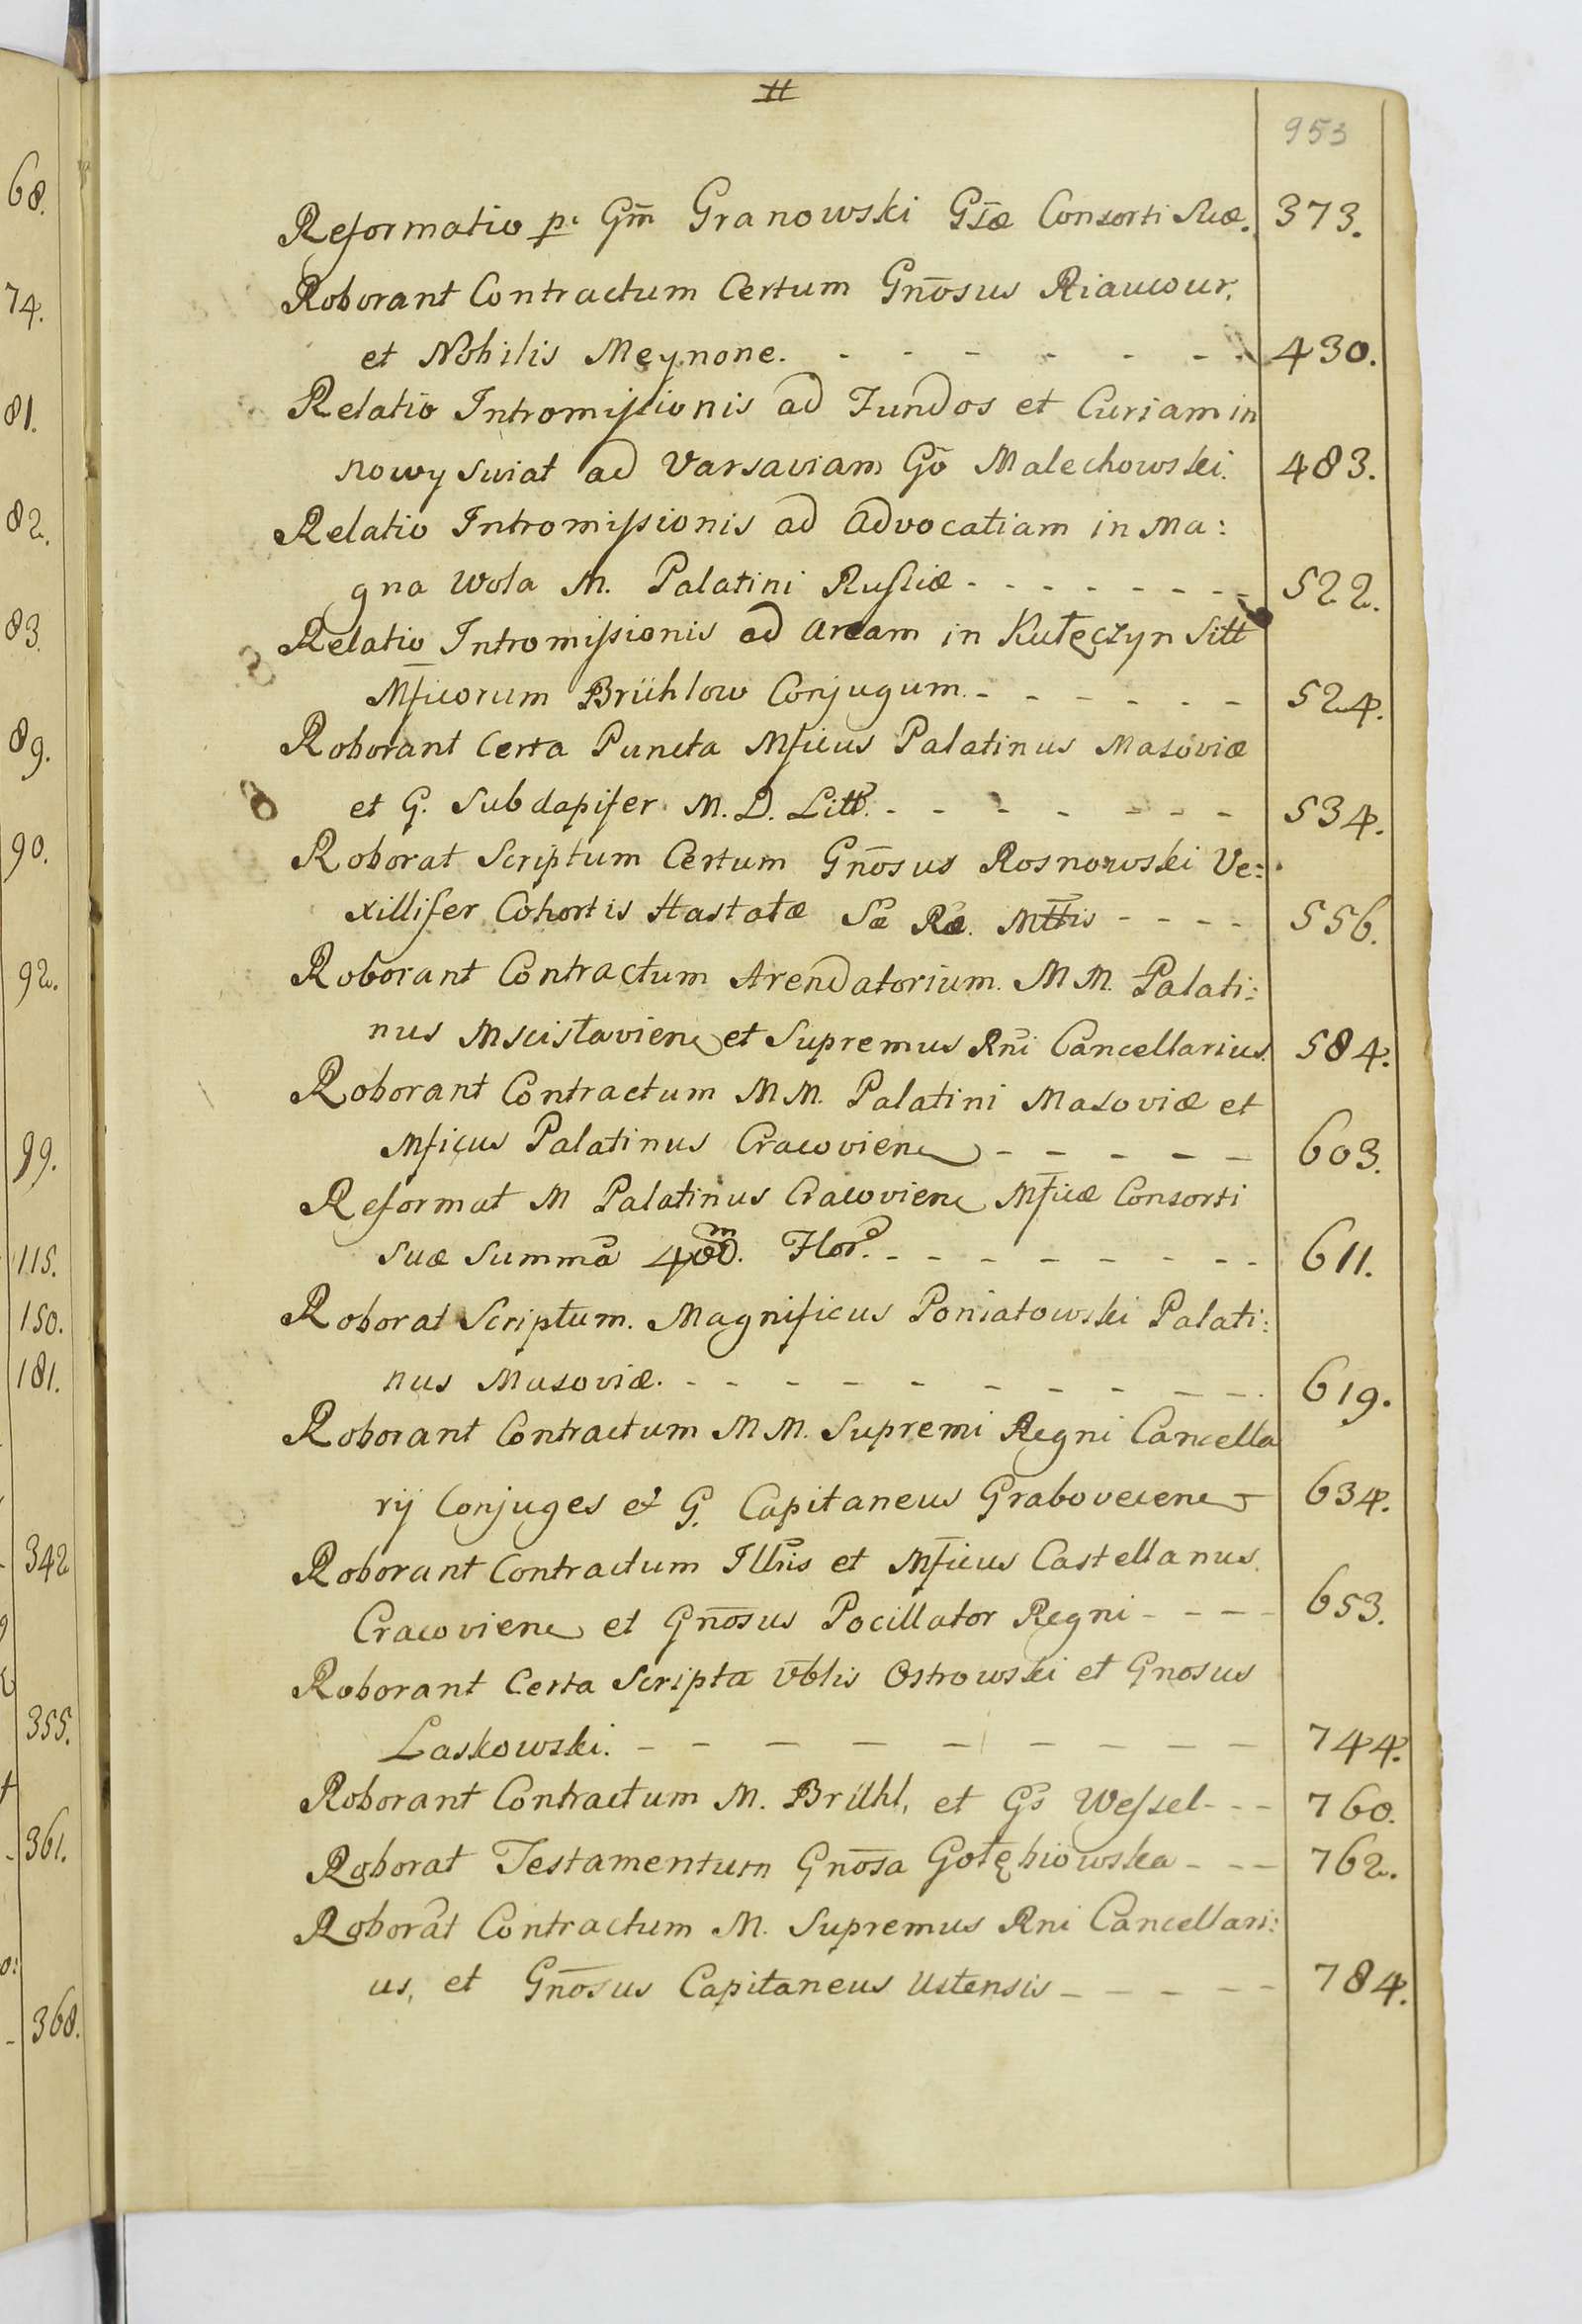 68.
74.
81.
82.
83.
89.
90.
92.
99.
115.
150.
181.
342
355.
361.
368.
953
Reformatio p. Gm̄ Granowski Gsæ Consorti Suæ. 373.
Roborant Contractum Certum Gnōsus Riaucour,
et Nobilis Meynone. - - - - - - - 430.
Relatio Intromissionis ad Fundos et Curiam in
nowy Swiat ad Varsaviam Gō Malechowski. 483.
Relatio Intromissionis ad Advocatiam in Ma:
gna Wola M. Palatini Russiæ - - - - - - - - 522.
Relatio Intromissionis ad Aream in Kułęczyn Sitt
Mficorum Brühlow Conjugum. - - - - - - 524.
Roborant Certa Puncta Mficus Palatinus Masoviæ
et G. Subdapifer M. D. Litt. - - - - - - - 534.
Roborat Scriptum Certum Gnōsus Rosnowski Ve:
xillifer Cohortis Hastatæ Sæ Ræ. Mttis - - - - 556.
Roborant Contractum Arendatorium. M M. Palati:
nus Mscisłavien et Supremus Rni Cancellarius. 584.
Roborant Contractum M M. Palatini Masoviæ et
Mficus Palatinus Cracovien - - - - - 603.
Reformat M Palatinus Cracovien Mficæ Consorti
Suæ Summā 400.m Flor. - - - - - - - - 611.
Roborat Scriptum. Magnificus Poniatowski Palati:
nus Masoviæ. - - - - - - - - - - 619.
Roborant Contractum M M. Supremi Regni Cancella
rij Conjuges et G. Capitaneus Grabovecen - 634.
Roborant Contractum Illris et Mficus Castellanus
Cracovien et Gnōsus Pocillator Regni - - - - 653.
Roborant Certa Scripta Vblis Ostrowski et Gnosus
Laskowski. - - - - - - - - - 744.
Roborant Contractum M. Brühl, et Gs Wessel - - - 760.
Roborat Testamentum Gnōsa Gołębiowska - - - 762.
Roborāt Contractum M. Supremus Rni Cancellari:
us, et Gnōsus Capitaneus Ustensis - - - - - 784.